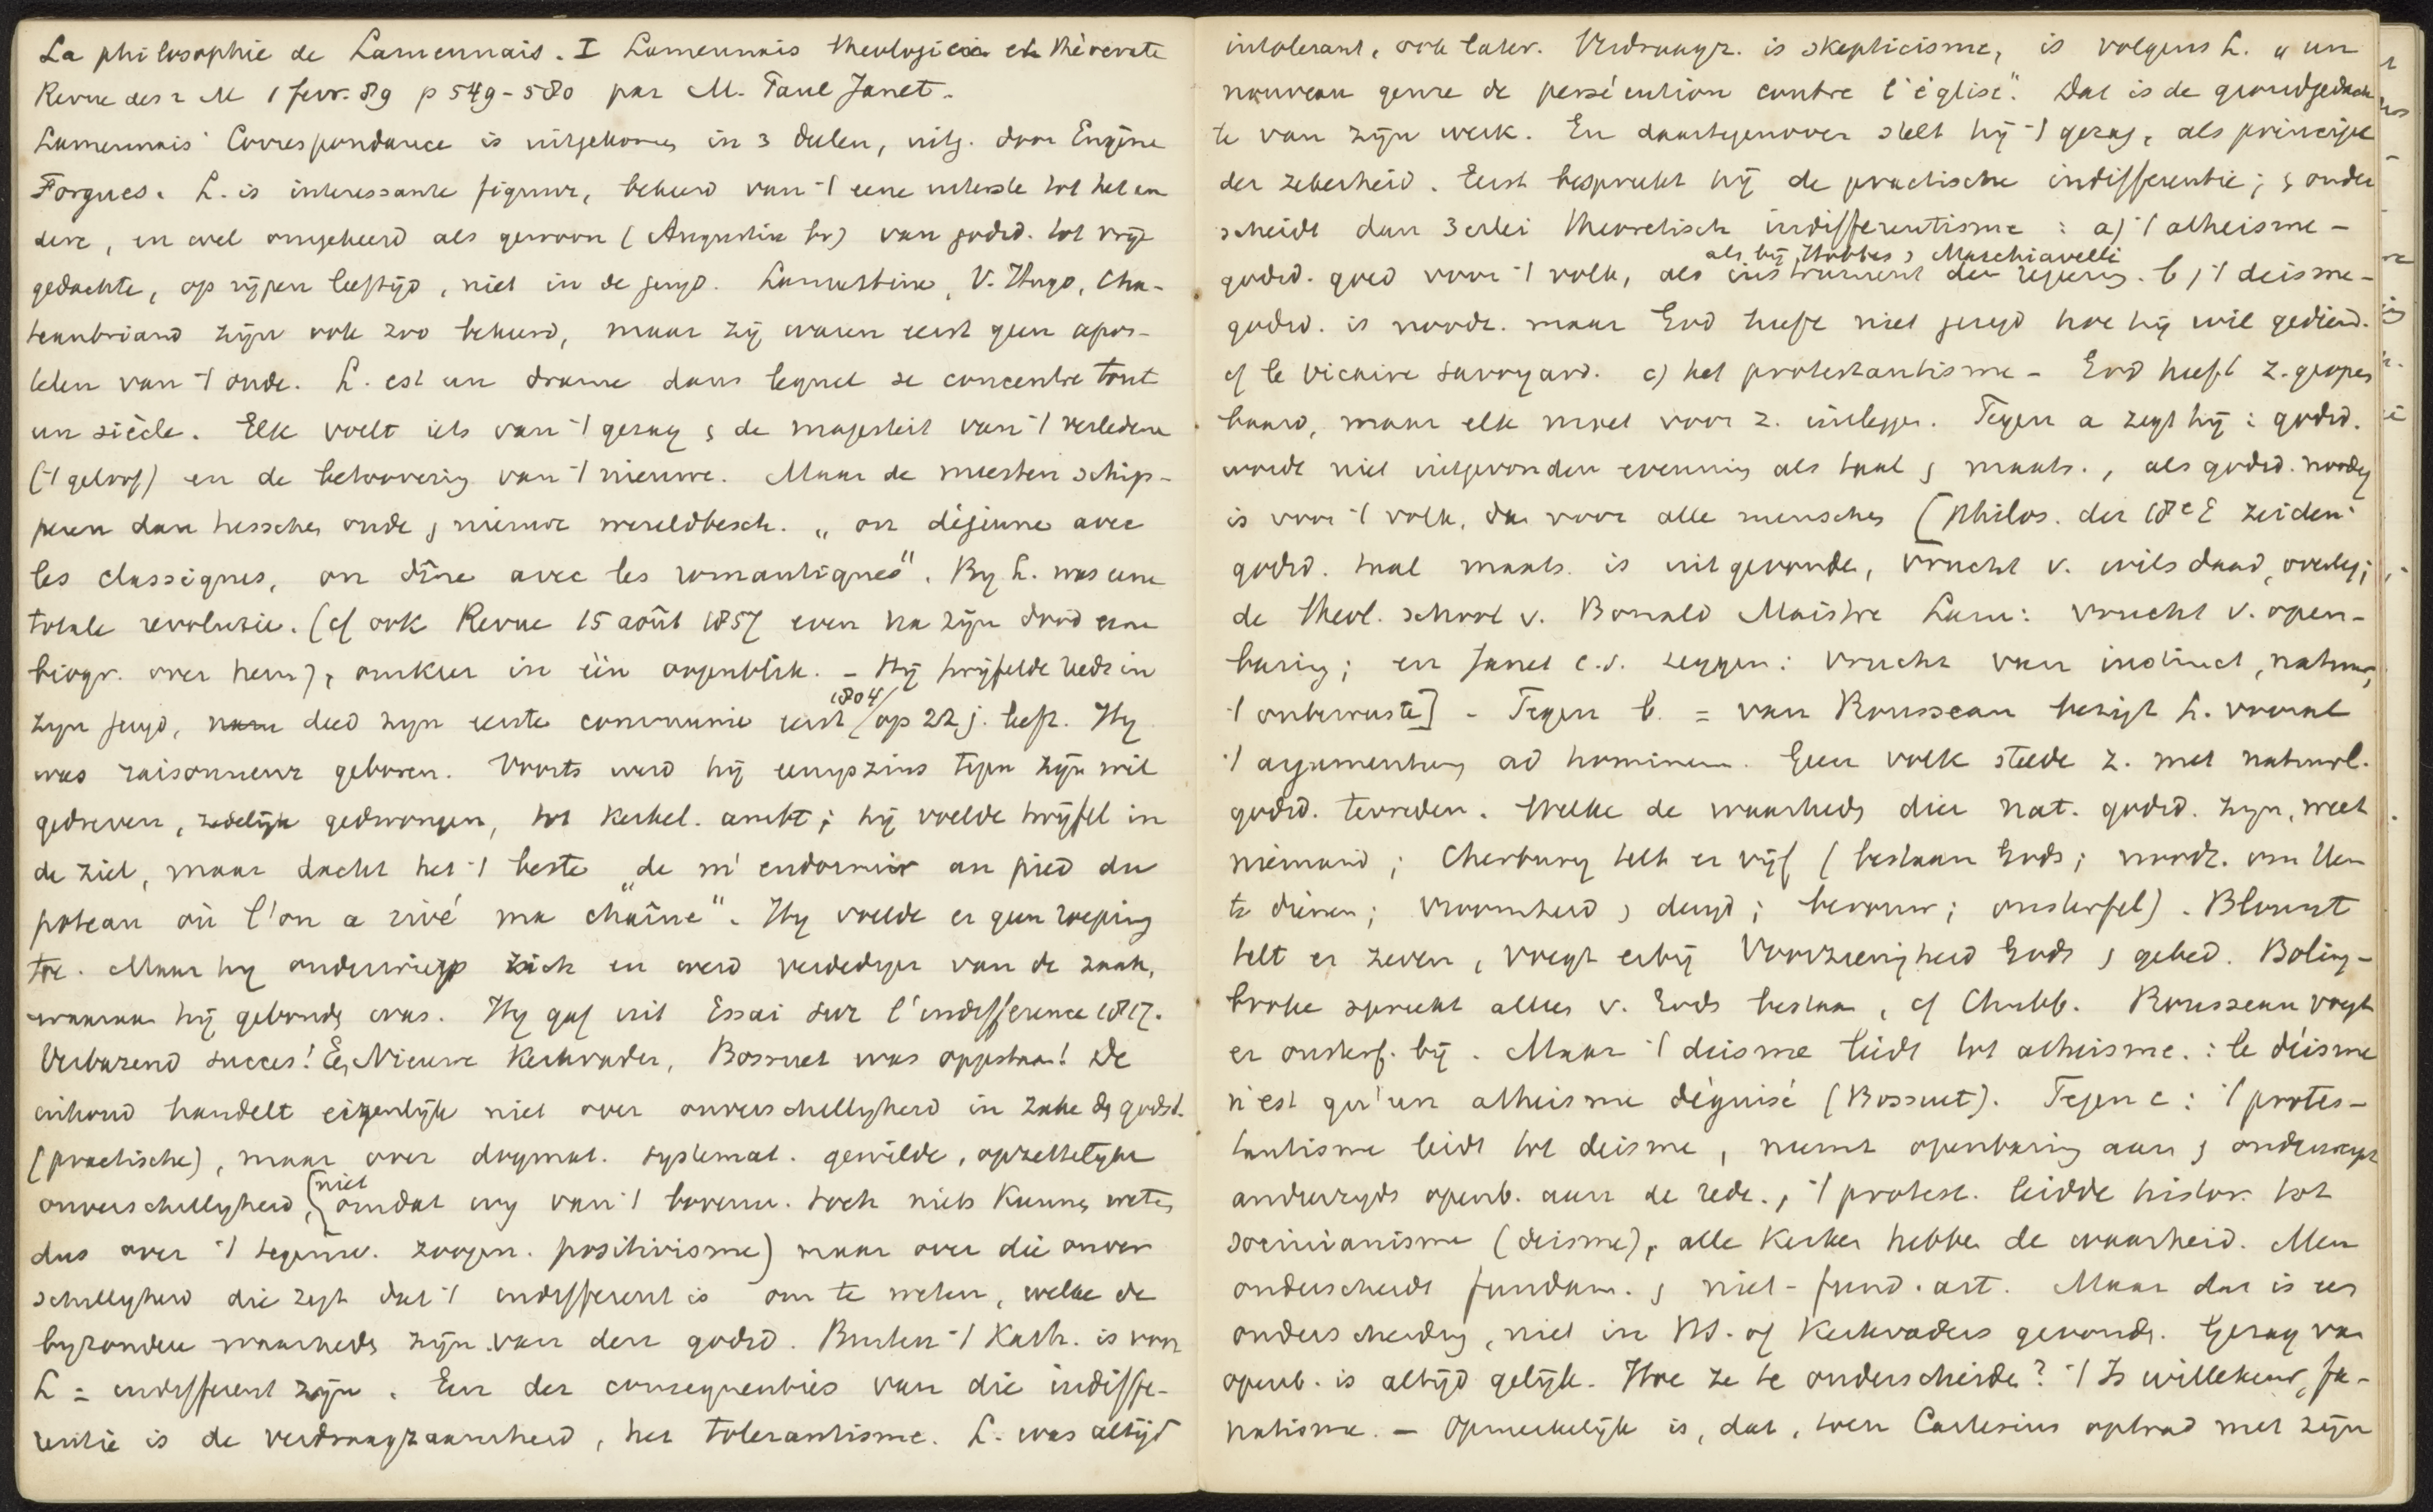 La philosophie de Lamennais. I Lamennais theologicien et théocrate
Revue des 2 M 1 fevr. 89 p 549-580 par M. Paul Janet.
Lamennais' Correspondance is uitgekomen in 3 deelen, uitg. door Eugène
Forgues. L. is interessante figuur, bekeerd van 't eene uiterste tot het an
dere, en wel omgekeerd als gewoon (Augustin bv) van godsd. tot vrije
gedachte, op rijpen leeftijd, niet in de jeugd. Lamartine, V. Hugo, Cha-
teaubriand zijn ook zoo bekeerd, maar zij waren eerst geen apos-
telen van 't oude. L. est un drame dans lequel se concentre tout
un siècle. Elk voelt iets van 't gezag & de majesteit van 't verledene
('t geloof) en de betoovering van 't nieuwe. Maar de meesten schip-
peren dan tusschen oude & nieuwe wereldbesch. „on déjeune avec
les classiques, on dîne avec les romantiques". By L. was eene
totale revolutie. (cf ook Revue 15 août 1857 even na zijn dood eene
biogr. over hem), omkeer in één oogenblik. - Hij twijfelde reeds in
zijn jeugd, deed zijn eerste communie eerst 1804/ op 22 j. leeft. Hy
was raisonneur geboren. Voorts werd hij eenigszins tegen zijn wil
gedreven, zedelijk gedwongen, tot kerkel. ambt; hij voelde twijfel in
de ziel, maar dacht het 't beste „de m'endormir au pied du
poteau où l'on a rivé ma chaîne". Hy voelde er geen roeping
toe. Maar hij onderwierp zich en werd verdediger van de zaak,
waaraan hij gebonden was. Hy gaf uit Essai sur l'indifference 1817.
Verbazend succes! Een Nieuwe Kerkvader, Bossuet was opgestaan! De
inhoud handelt eigenlijk niet over onverschilligheid in zake de godsd.
(practische), maar over dogmat. systemat. gewilde, opzettelijke
onverschilligheid, (niet omdat wij van 't bovenn. toch niets kunnen weten
dus over 't tegenw. zoogen. positivisme) maar over die onver
schilligheid die zegt dat 't indifferent is om te weten, welke de
byzondere waarheden zijn van den godsd. Buiten 't Kath. is voor
L = indifferent zijn. Een der consequenties van die indiffe-
rentie is de verdraagzaamheid, het tolerantisme. L. was altijd
intolerant, ook later. Verdraagz. is skepticisme, is volgens L. „un
nouveau genre de persécution contre l'église". Dat is de grondgedach
te van zijn werk. En daartegenover stelt hij 't gezag, als principe
der zekerheid. Eerst bespreekt hij de practische indifferentie; & onder
scheidt dan 3erlei theoretisch indifferentisme: a) 't atheisme -
als bij Hobbes & Macchiavelli
godsd. goed voor 't volk, als instrument der regering. b) 't deisme -
godsd. is noodz. maar God heeft niet gezegd hoe hij wil gediend.
cf le Vicaire savoyard. c) het protestantisme - God heeft z. geopen
baard, maar elk moet voor z. uitleggen. Tegen a zegt hij: godsd.
wordt niet uitgevonden evenmin als taal & maats., als godsd. noodig
is voor 't volk, dan voor alle menschen [philos. der 18e E zeiden:
godsd. taal maats. is uitgevonden, vrucht v. wilsdaad, overleg;
de theol. school v. Bonald Maistre Lam: vrucht v. open-
baring; en Janet c.s. zeggen: vrucht van instinct, natuur,
't onbewuste] - Tegen b. = van Rousseau bezigt L. vooral
't argumentum ad hominem. Geen volk stelde z. met natuurl.
godsd. tevreden. Welke de waarheden dier nat. godsd. zijn, weet
niemand; Cherbury telt er vijf (bestaan Gods; noodz. om Hem
te dienen; vroomheid & deugd; berouw; onsterfel). Blount
telt er zeven, voegt erbij Voorzienigheid Gods & gebed. Boling-
broke spreekt alleen v. Gods bestaan, cf Chubb. Rousseau voegt
er onsterf. bij. Maar 't deisme leidt tot atheisme.: le déisme
n'est qu'un atheisme déguisé (Bossuet). Tegen c: 't protes-
tantisme leidt tot deisme, neemt openbaring aan & onderwerpt
anderzyds openb. aan de rede., 't protest. leidde histor. tot
socinianisme (deisme), alle kerken hebben de waarheid. Men
onderscheidt fundam. & niet-fund. art. Maar dat is een
onderscheiding, niet in NT. of Kerkvaders gevonden. Gezag van
openb. is altijd gelijk. Hoe ze te onderscheiden? 't Is willekeur, fa-
natisme. - Opmerkelijk is, dat, toen Cartesius optrad met zijn